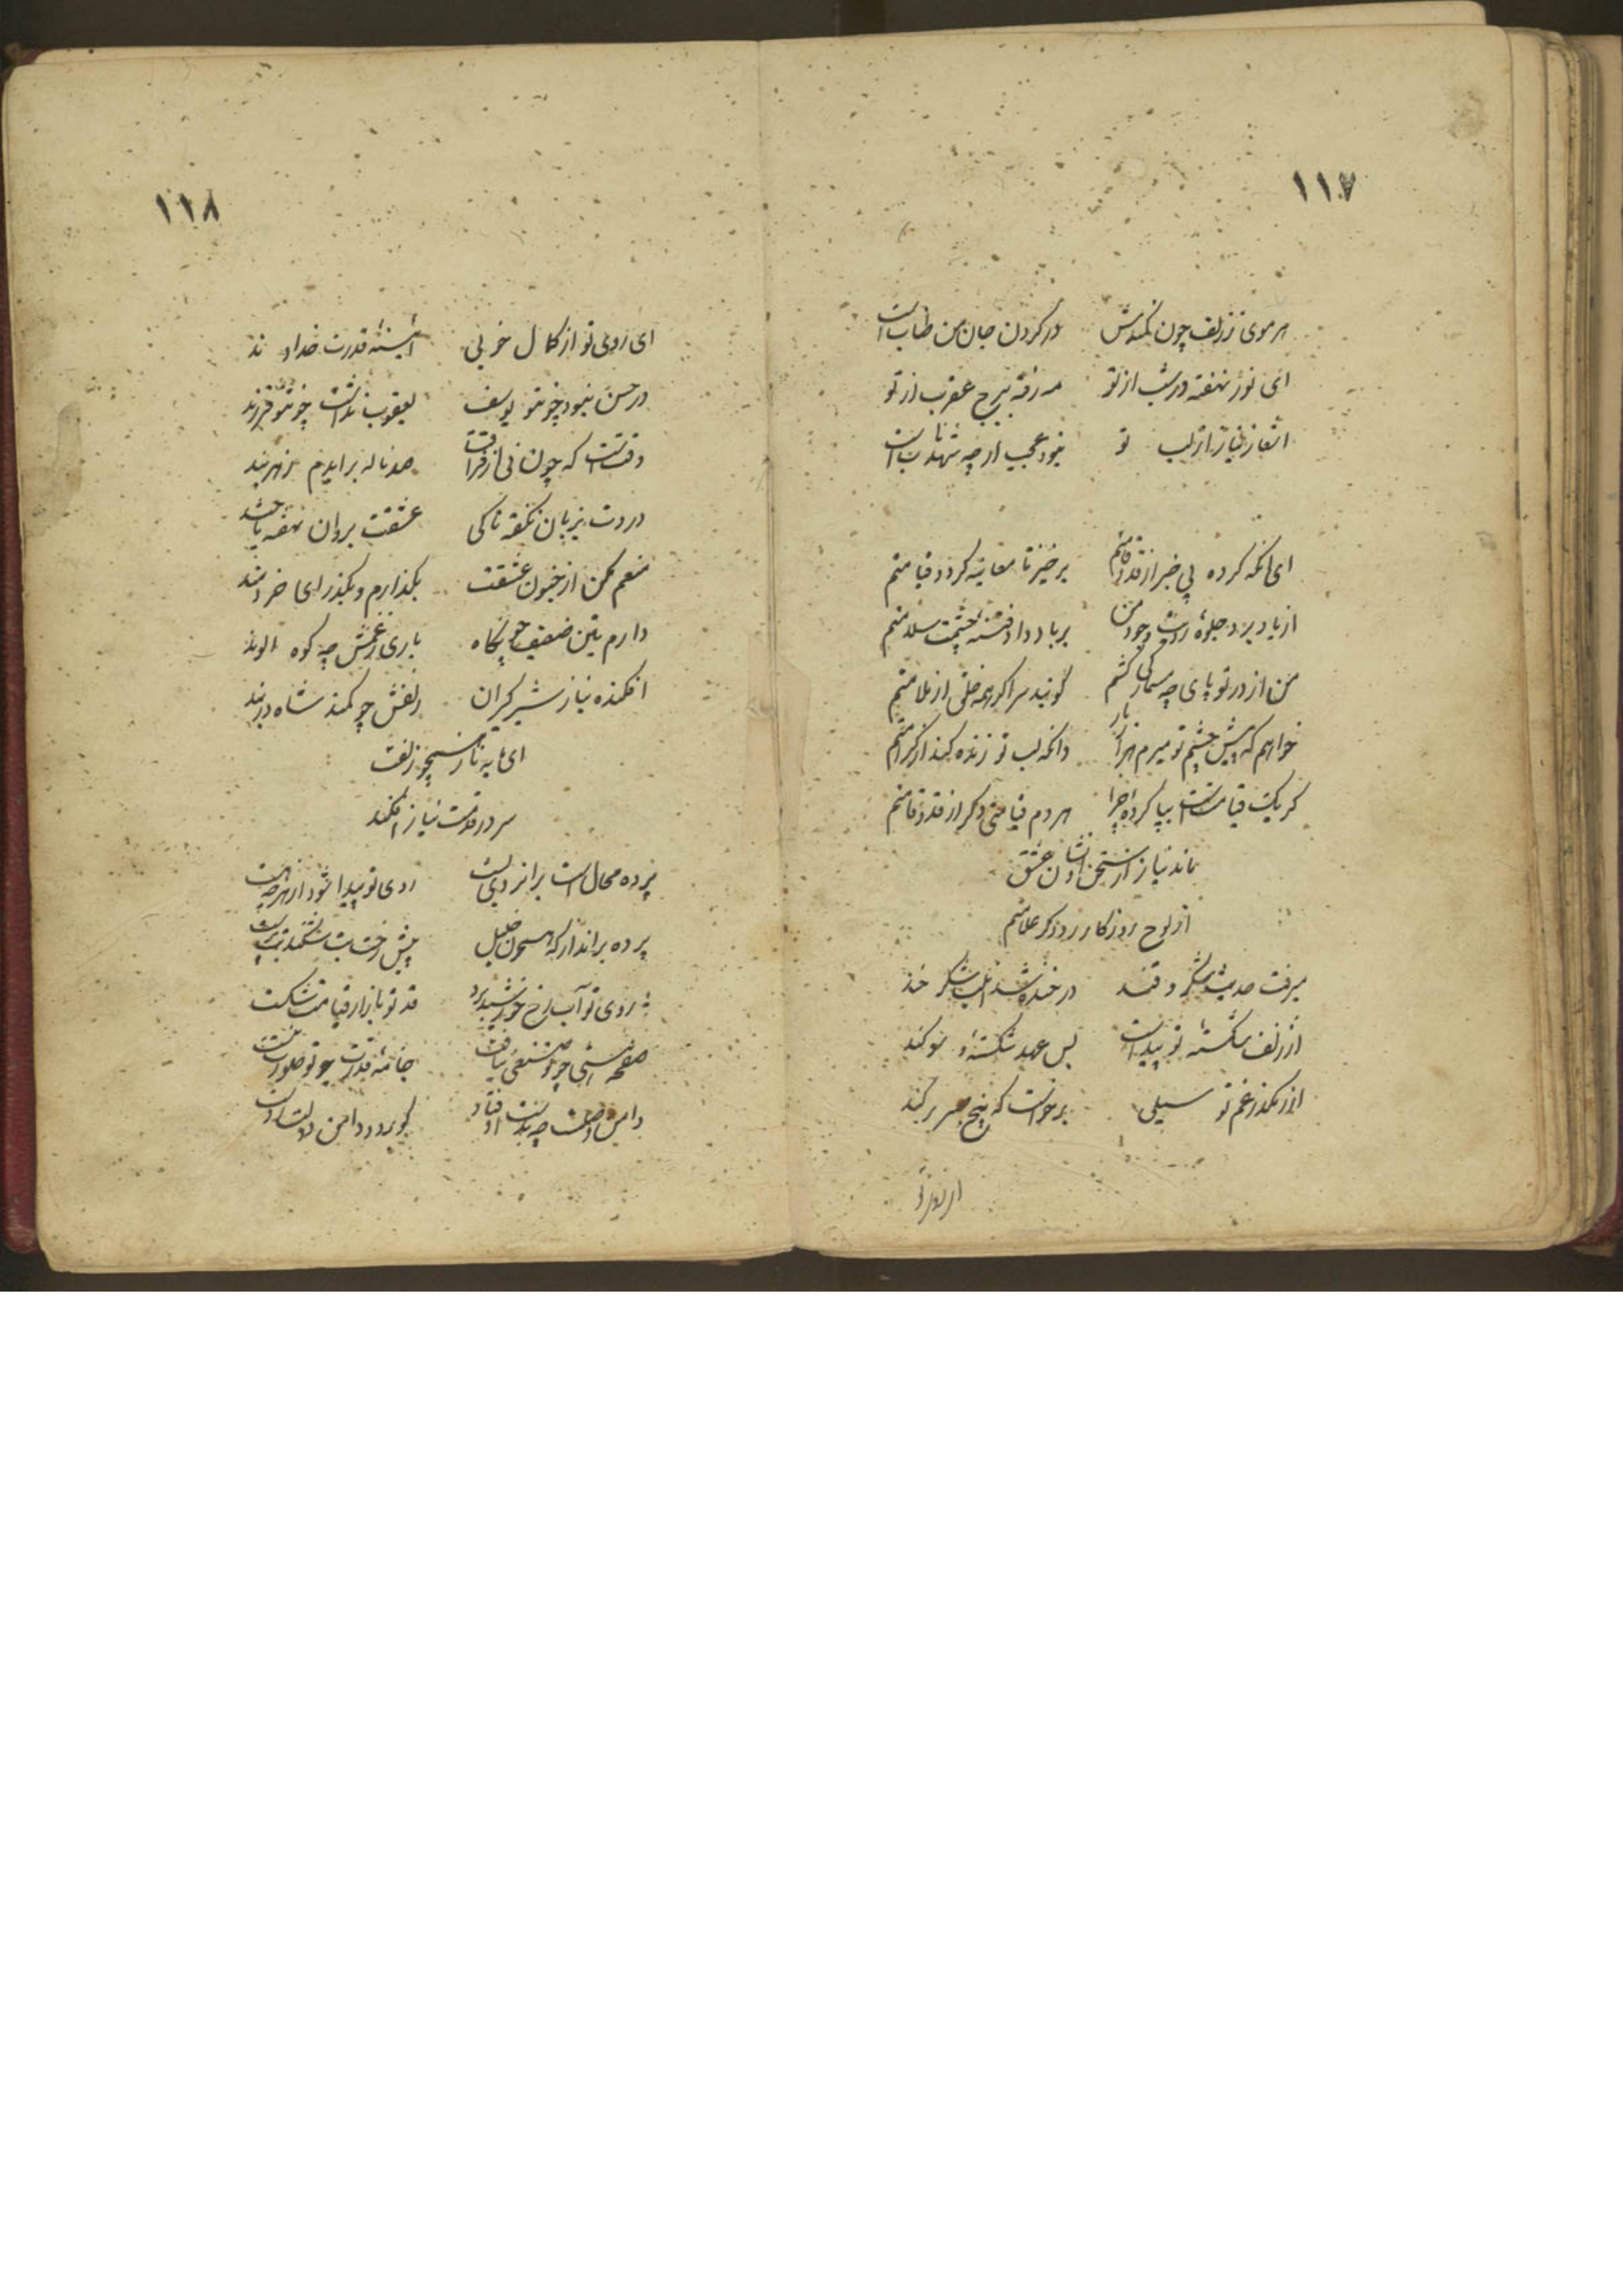 ١١٧
هر موی ز زلف چون کمندش در گردن جان من طناب است
ای نور نهفته در شب از تو مه رفته ببرج عقرب از تو
اشعار نیاز از لب تو نبود عجب ار چه شهد ناب است
ای آنکه کرده بی خبر از قد و قامتم برخیز تا معاینه گردد قیامتم
از یاد برد جلوه رویت وجود من بر باد داد فتنه چشمت سلامتم
من از در تو پای چه سان کی کشم گویند سر اگر همه خلق از ملامتم
خواهم که پیش چشم تو میرم هزار بار دانکه لب تو زنده کند از کرامتم
گر یک قیامت است بپا کرده چرا هر دم قیامتی دگر از قد و قامتم
ماند نیاز از سخن ات نشان عشق
از لوح روزگار رود گر علامتم
میرفت حدیث شکر و قند در خنده شد آن لب شکر خند
از زلف شکسته تو پیداست بس عهد شکسته و سوگند
از رهگذر غم تو سیلی برخواست که بیخ صبر بر کند
از نور تو
١١٨
ای روی تو از کمال خوبی آئینه قدرت خداوند
در حسن نبود چو تو یوسف یعقوب نداشت چو تو فرزند
وقتست که چون نی از فراقت صد ناله برآیدم ز هر بند
دردت بزبان نگفته تا کی عشقت بروان نهفته تا چند
منعم مکن از جنون عشقت بگذارم و بگذر ای خردمند
دارم تن ضعیف چو کاه باری ز غمش چه کوه الوند
افکنده نیاز شیر گیران زلفش چو کمند شاه در بند
ای مایه ناز همچو زلفت
سر در قدمت نیاز افکند
پرده محال است برانروی بست روی تو پیدا شود از هر چه هست
پرده برانداز که همچون خلیل پیش رخت بت شکند بت پرست
روی تو آب رخ خورشید برد قد تو بازار قیامت شکست
صفحه هستی چو تو نقشی نیافت خامه قدرت چو تو صورت نبست
دامن وصلت چه بدست اوفتاد گو برود دامن دولت ز دست